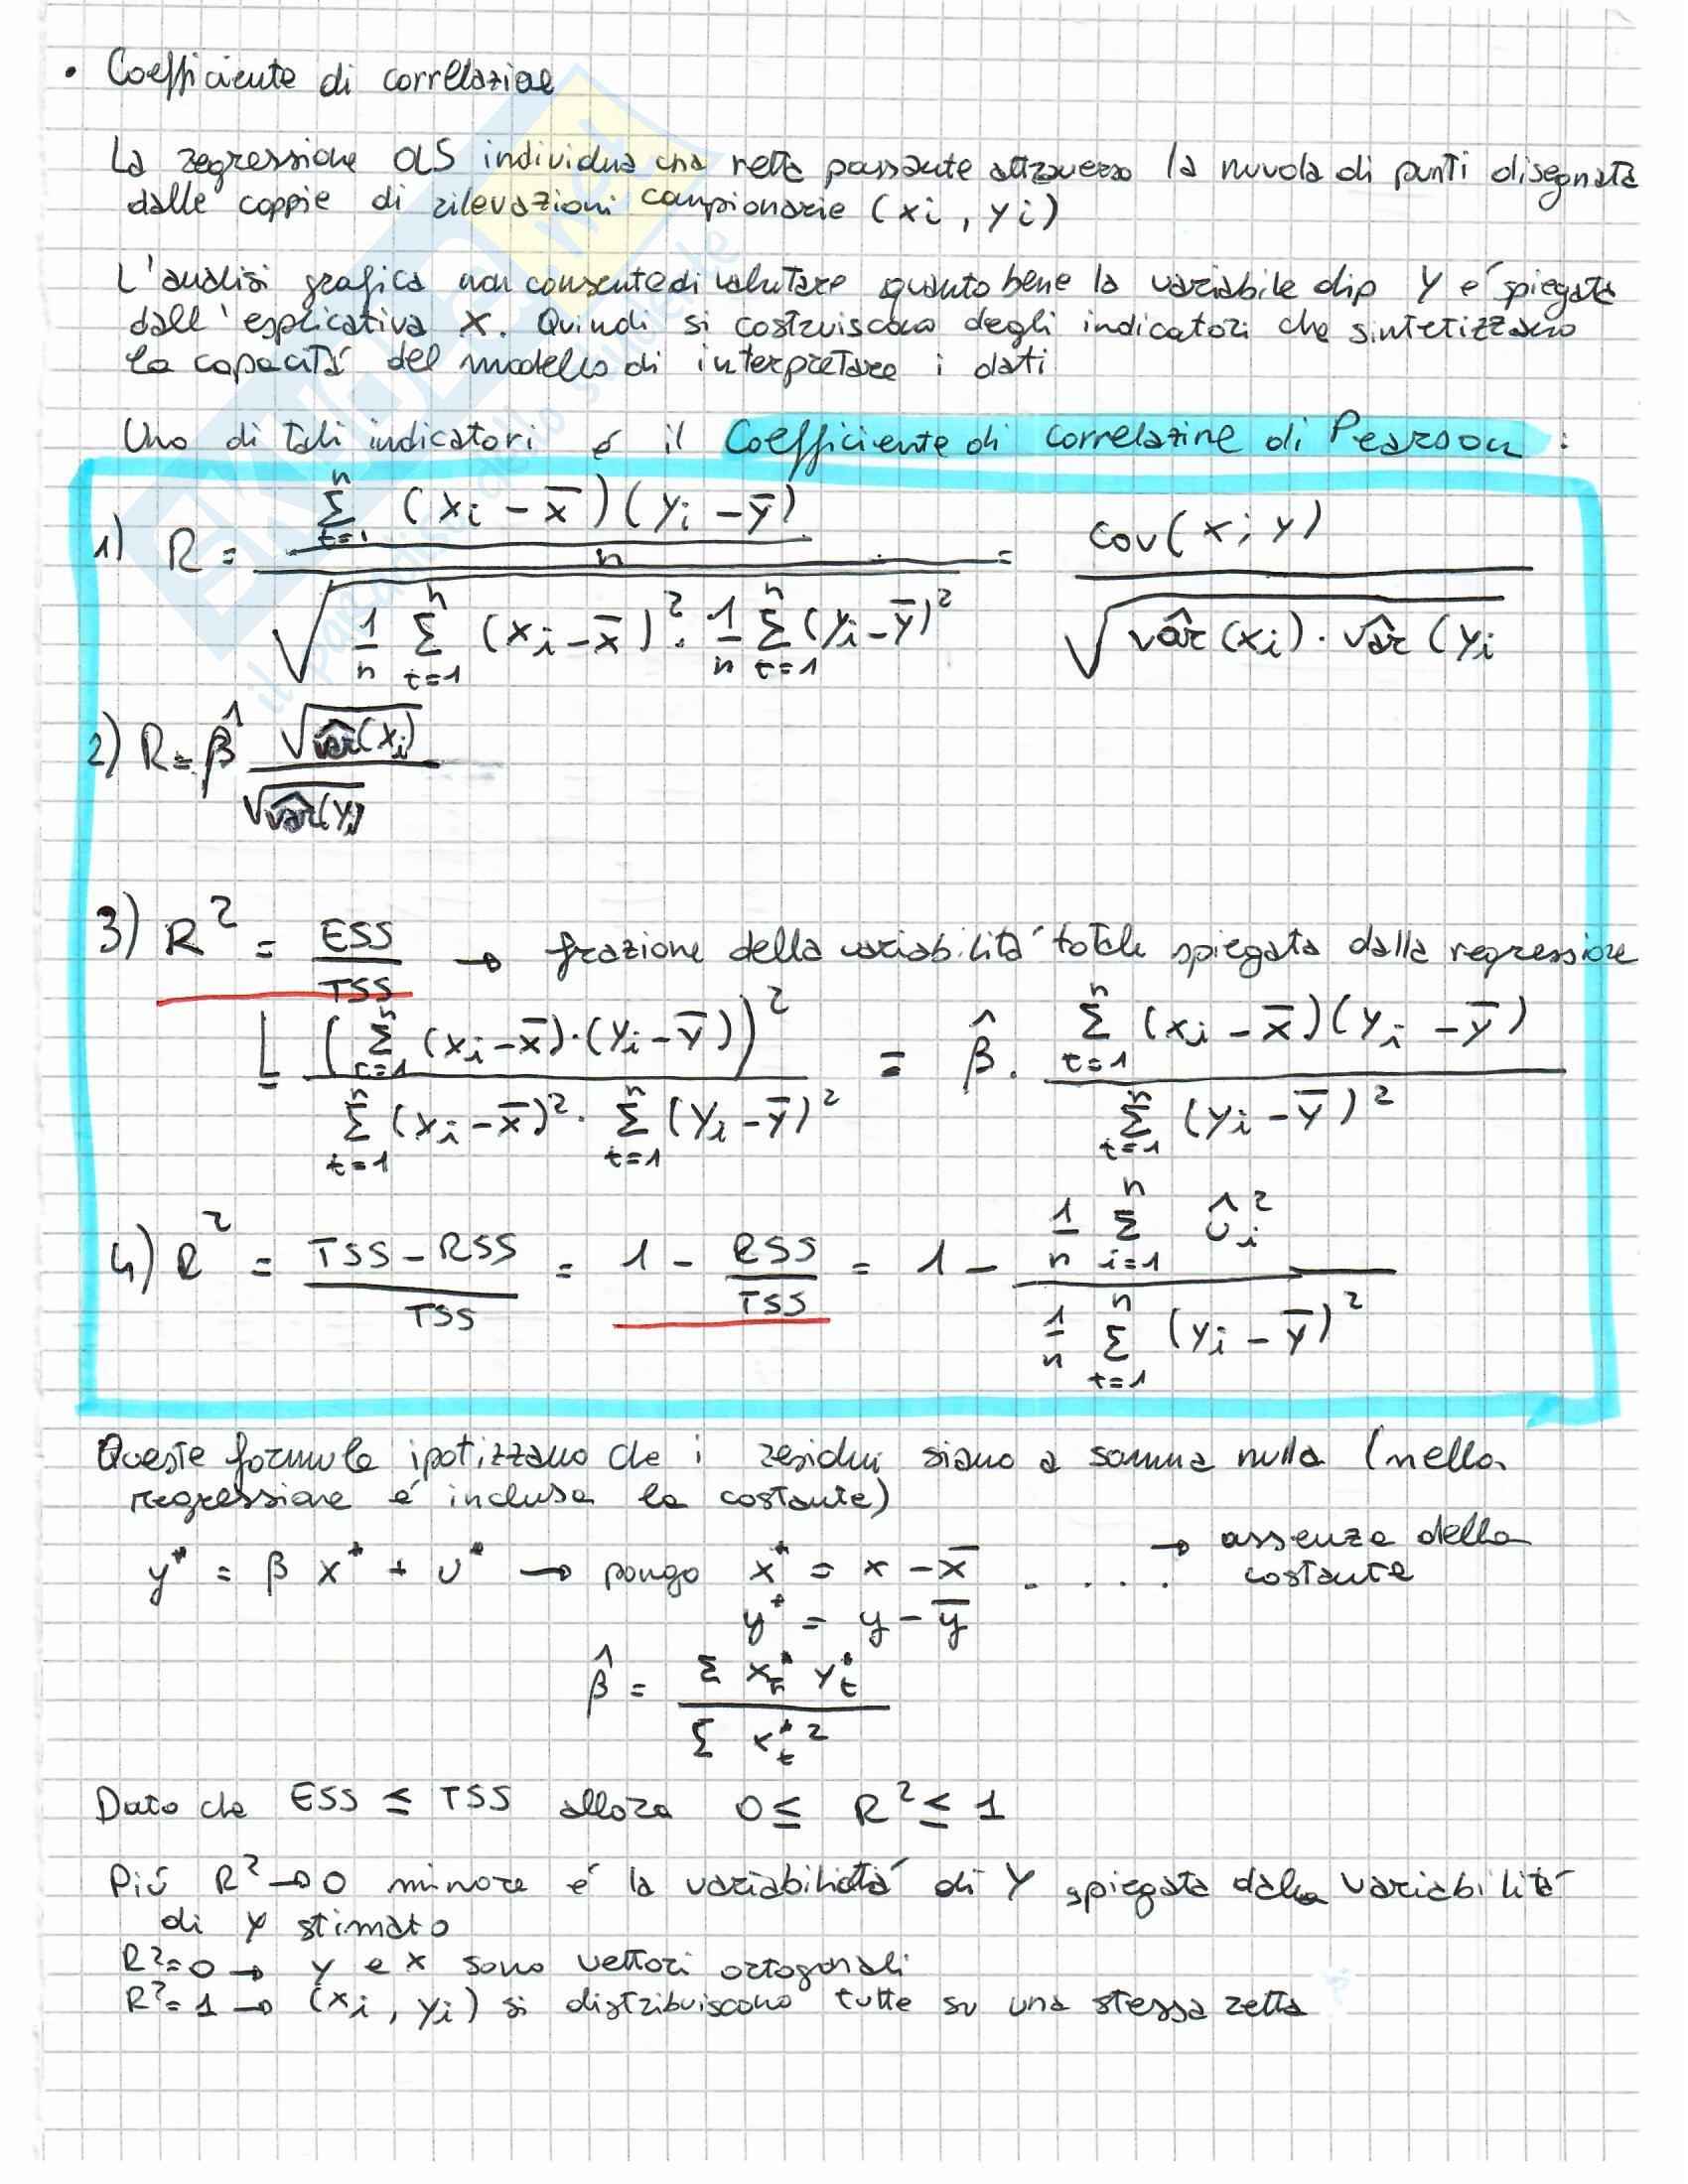 • Coefficiente di correlazione
La regressione OLS individua una retta passante attraverso la nuvola di punti disegnata
dalle coppie di rilevazioni campionarie (xi, yi)
L'analisi grafica non consente di valutare quanto bene la variabile dip Y é spiegata
dall'esplicativa X. Quindi si costruiscono degli indicatori che sintetizzano
la capacitá del modello di interpretare i dati
Uno di tali indicatori é il Coefficiente di correlazine di Pearson :
1) R = (Σ_{t=1}^{n} (xi - x̄)(yi - ȳ) / n) / √(1/n Σ_{t=1}^{n} (xi - x̄)² · 1/n Σ_{t=1}^{n} (yi - ȳ)²) = cov(x; y) / √(vâr(xi) · vâr(yi
2) R = β̂ √(vâr(xi)) / √(vâr(yi))
3) R² = ESS / TSS → frazione della variabilitá totale spiegata dalla regressione
= (Σ_{t=1}^{n} (xi - x̄)·(yi - ȳ))² / Σ_{t=1}^{n} (xi - x̄)² · Σ_{t=1}^{n} (yi - ȳ)² = β̂ · Σ_{t=1}^{n} (xi - x̄)(yi - ȳ) / Σ_{t=1}^{n} (yi - ȳ)²
4) R² = TSS - RSS / TSS = 1 - RSS / TSS = 1 - (1/n Σ_{i=1}^{n} ûi²) / (1/n Σ_{t=1}^{n} (yi - ȳ)²)
Queste formule ipotizzano che i residui siano a somma nulla (nella
regressione é inclusa la costante)
y* = β x* + u* → pongo x* = x - x̄ .... → assenza della
costante
y* = y - ȳ
β̂ = Σ xt* yt* / Σ xt*²
Dato che ESS ≤ TSS allora 0 ≤ R² ≤ 1
Piú R² → 0 minore é la variabilitá di Y spiegata dalla variabilitá
di Y stimato
R² = 0 → y e x sono vettori ortogonali
R² = 1 → (xi, yi) si distribuiscono tutte su una stessa retta